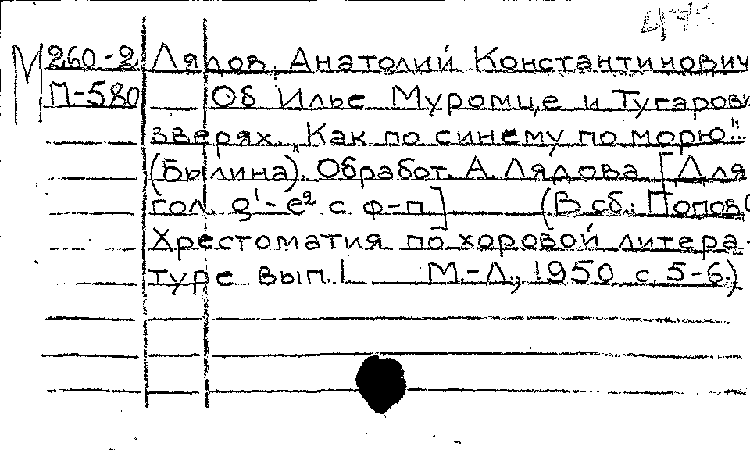 М 260-2 Лядов, Анатолий Константинович
П-580 Об Илье Муромце и Тугаровых
зверях. „Как по синему по морю..."
(Былина). Обработ. А. Лядова [Для
гол. g¹-e² с ф-п] (В сб.: Попов С
Хрестоматия по хоровой литера-
туре вып. 1 М.-Л., 1950 с. 5-6.)